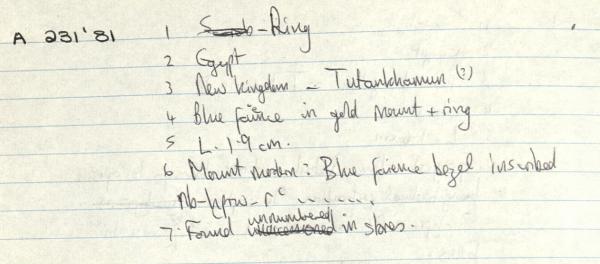 A 231'81 1 S̶c̶a̶r̶a̶b̶-Ring
2 Egypt
3 New Kingdom - Tutankhamun (?)
4 Blue faience in gold mount + ring
5 L. 1.9 cm.
6 Mount modern: Blue faience bezel inscribed
nb-hprw-rc .......
7. Found unnumbered in stores.